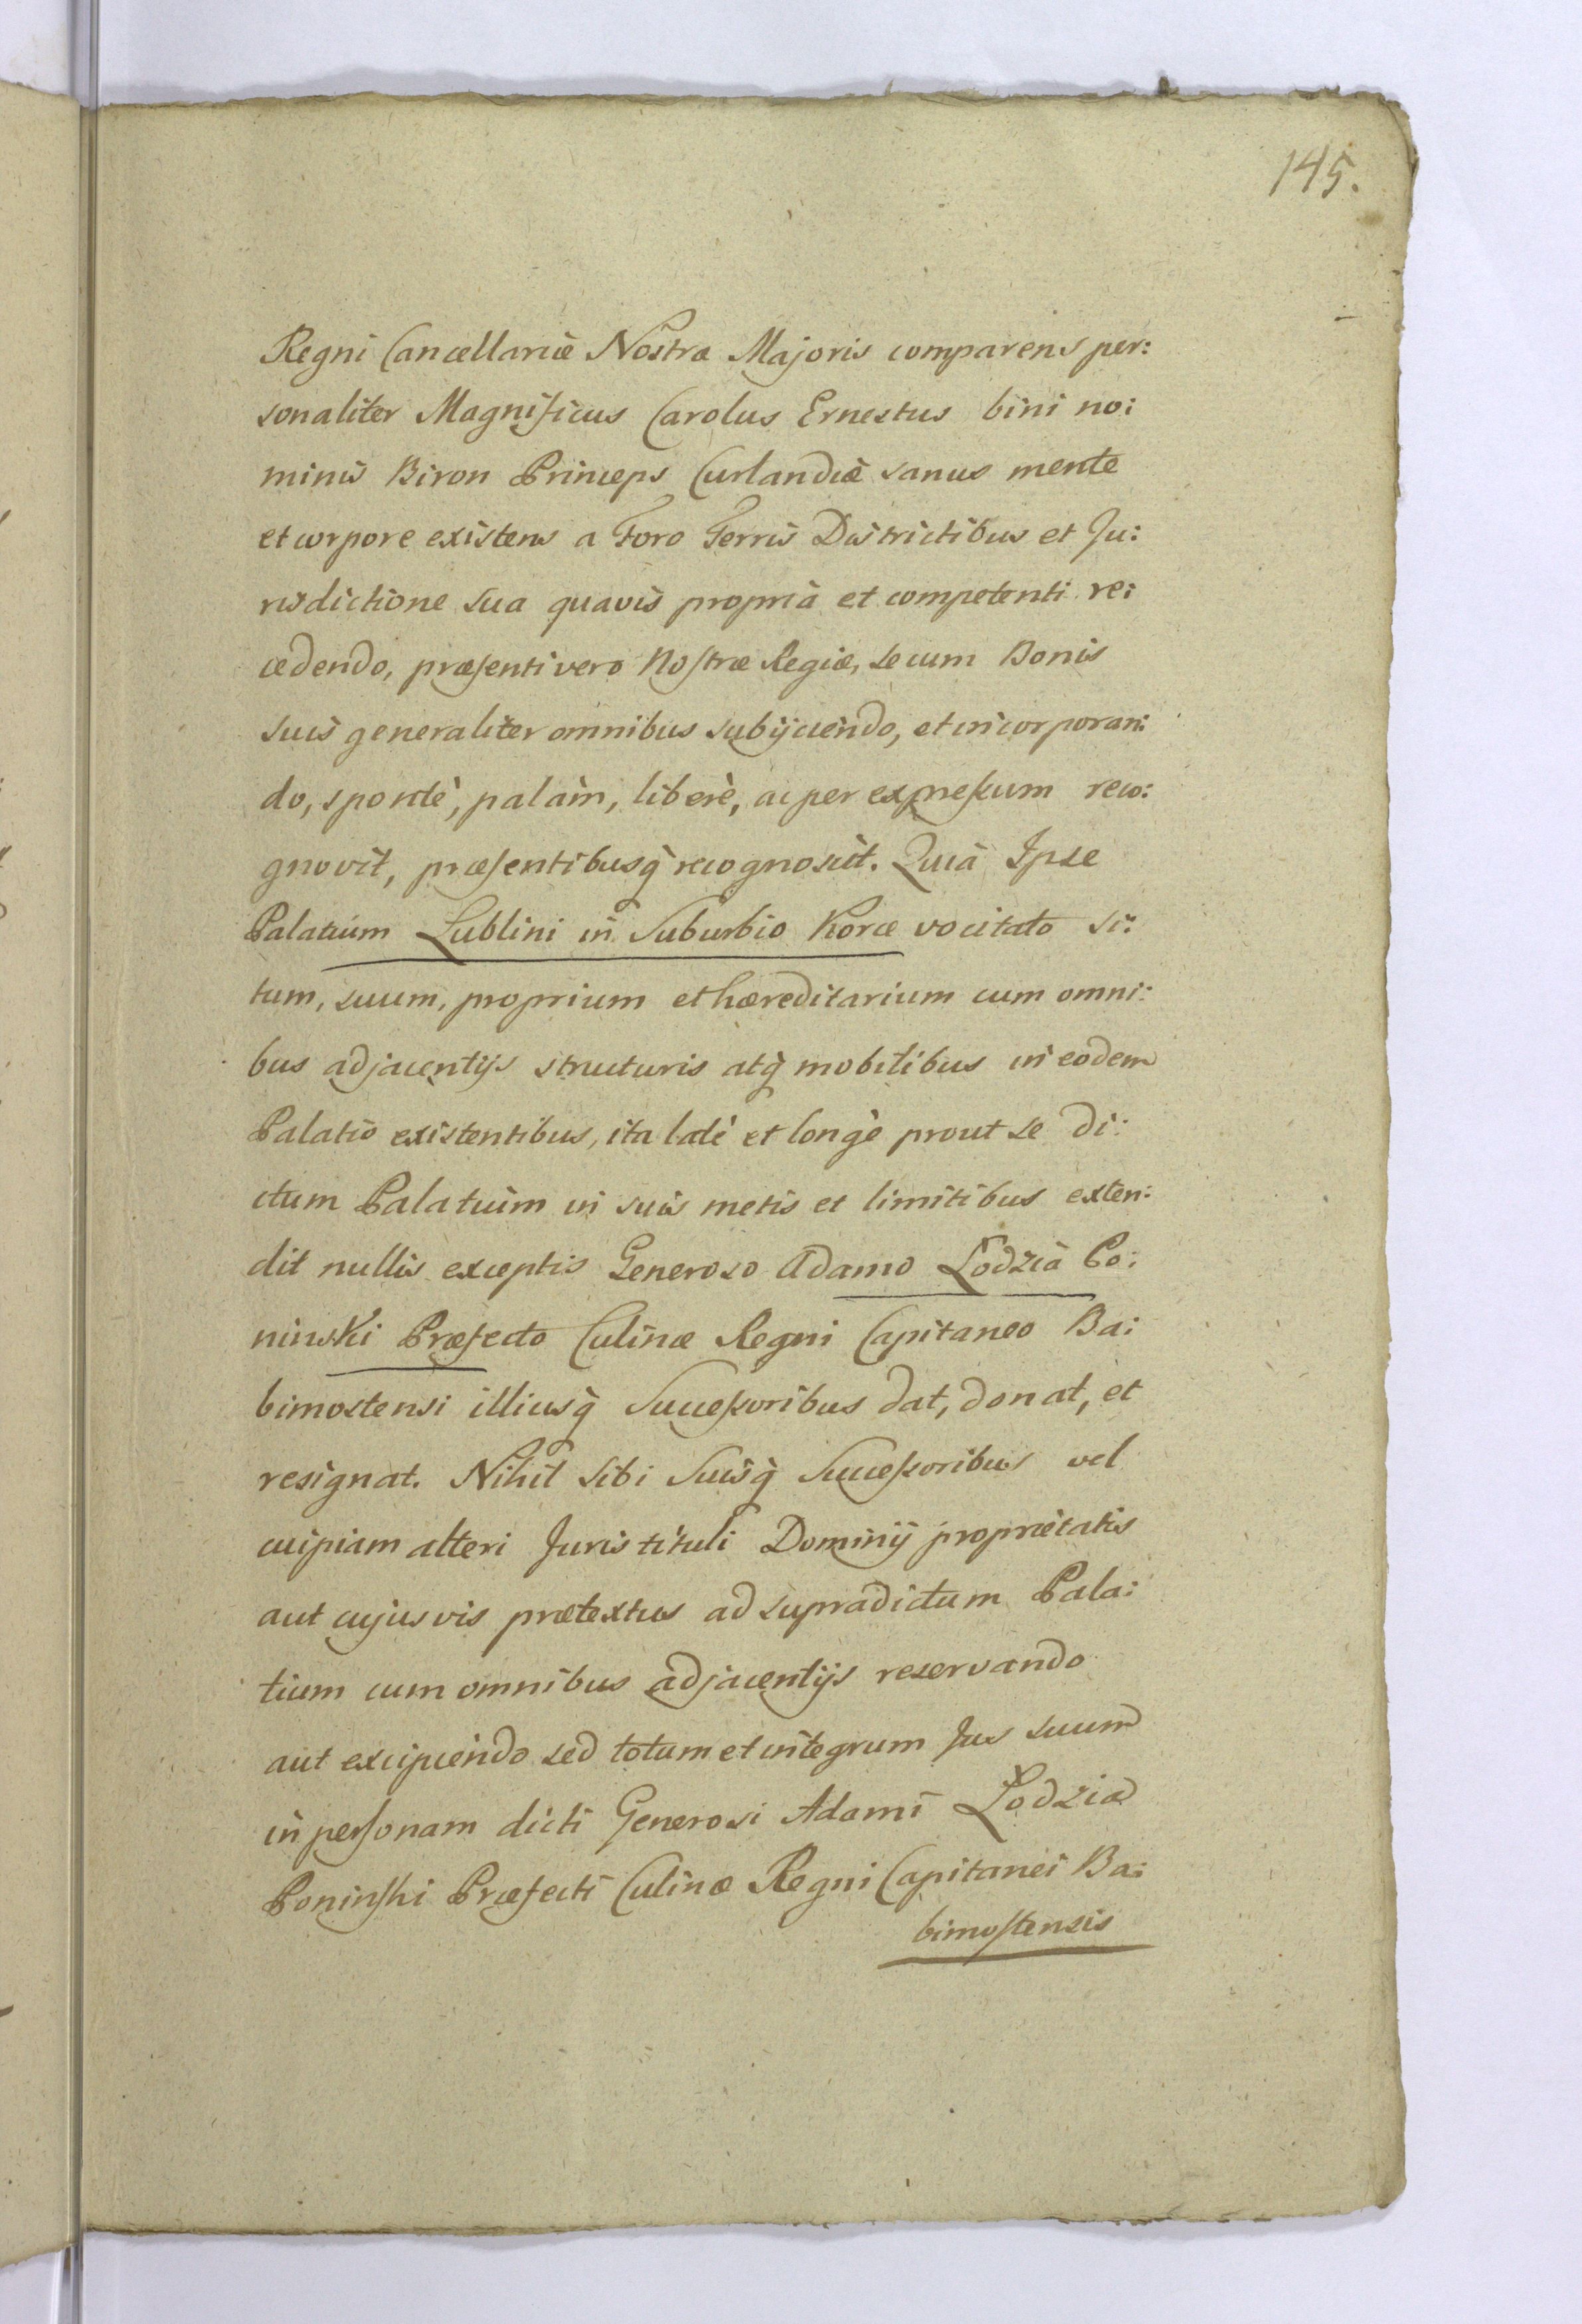 145.
Regni Cancellariæ Nostræ Majoris comparens per:
sonaliter Magnificus Carolus Ernestus bini no:
minis Biron Princeps Curlandiæ sanus mente
et corpore existens a Foro Terris Districtibus et Ju:
risdictione sua quavis propriâ et competenti re:
cedendo, præſenti vero Noſtræ Regiæ, se cum Bonis
suis generaliter omnibus subijciendo, et incorporan:
do, spontè, palàm, liberè, ac per expreſsum reco:
gnovit, præſentibusq̀ recognoscit. Quià Ipse
Palatium Lublini in Suburbio Korce vocitato si:
tum, suum, proprium et hæreditarium cum omni:
bus adjacentijs structuris atq̀ mobilibus in eodem
Palatio existentibus, ita latè et longè prout se di:
ctum Palatium in suis metis et limitibus exten:
dit nullis exceptis Generoso Adamo Łodzià Po:
ninski Præfecto Culinæ Regni Capitaneo Ba:
bimostensi illiusq̀ Succeſsoribus dat, donat, et
resignat. Nihil sibi Suisq̀ Succeſsoribus vel
cuipiam alteri Juris tituli Dominij proprietatis
aut cujusvis prætextus ad supradictum Pala:
tium cum omnibus adjacentijs reservando
aut excipiendo sed totum et integrum Jus suum
in perſonam dicti Generosi Adami Łodzia
Poninſki Præfecti Culinæ Regni Capitanei Ba:
bimoſtensis